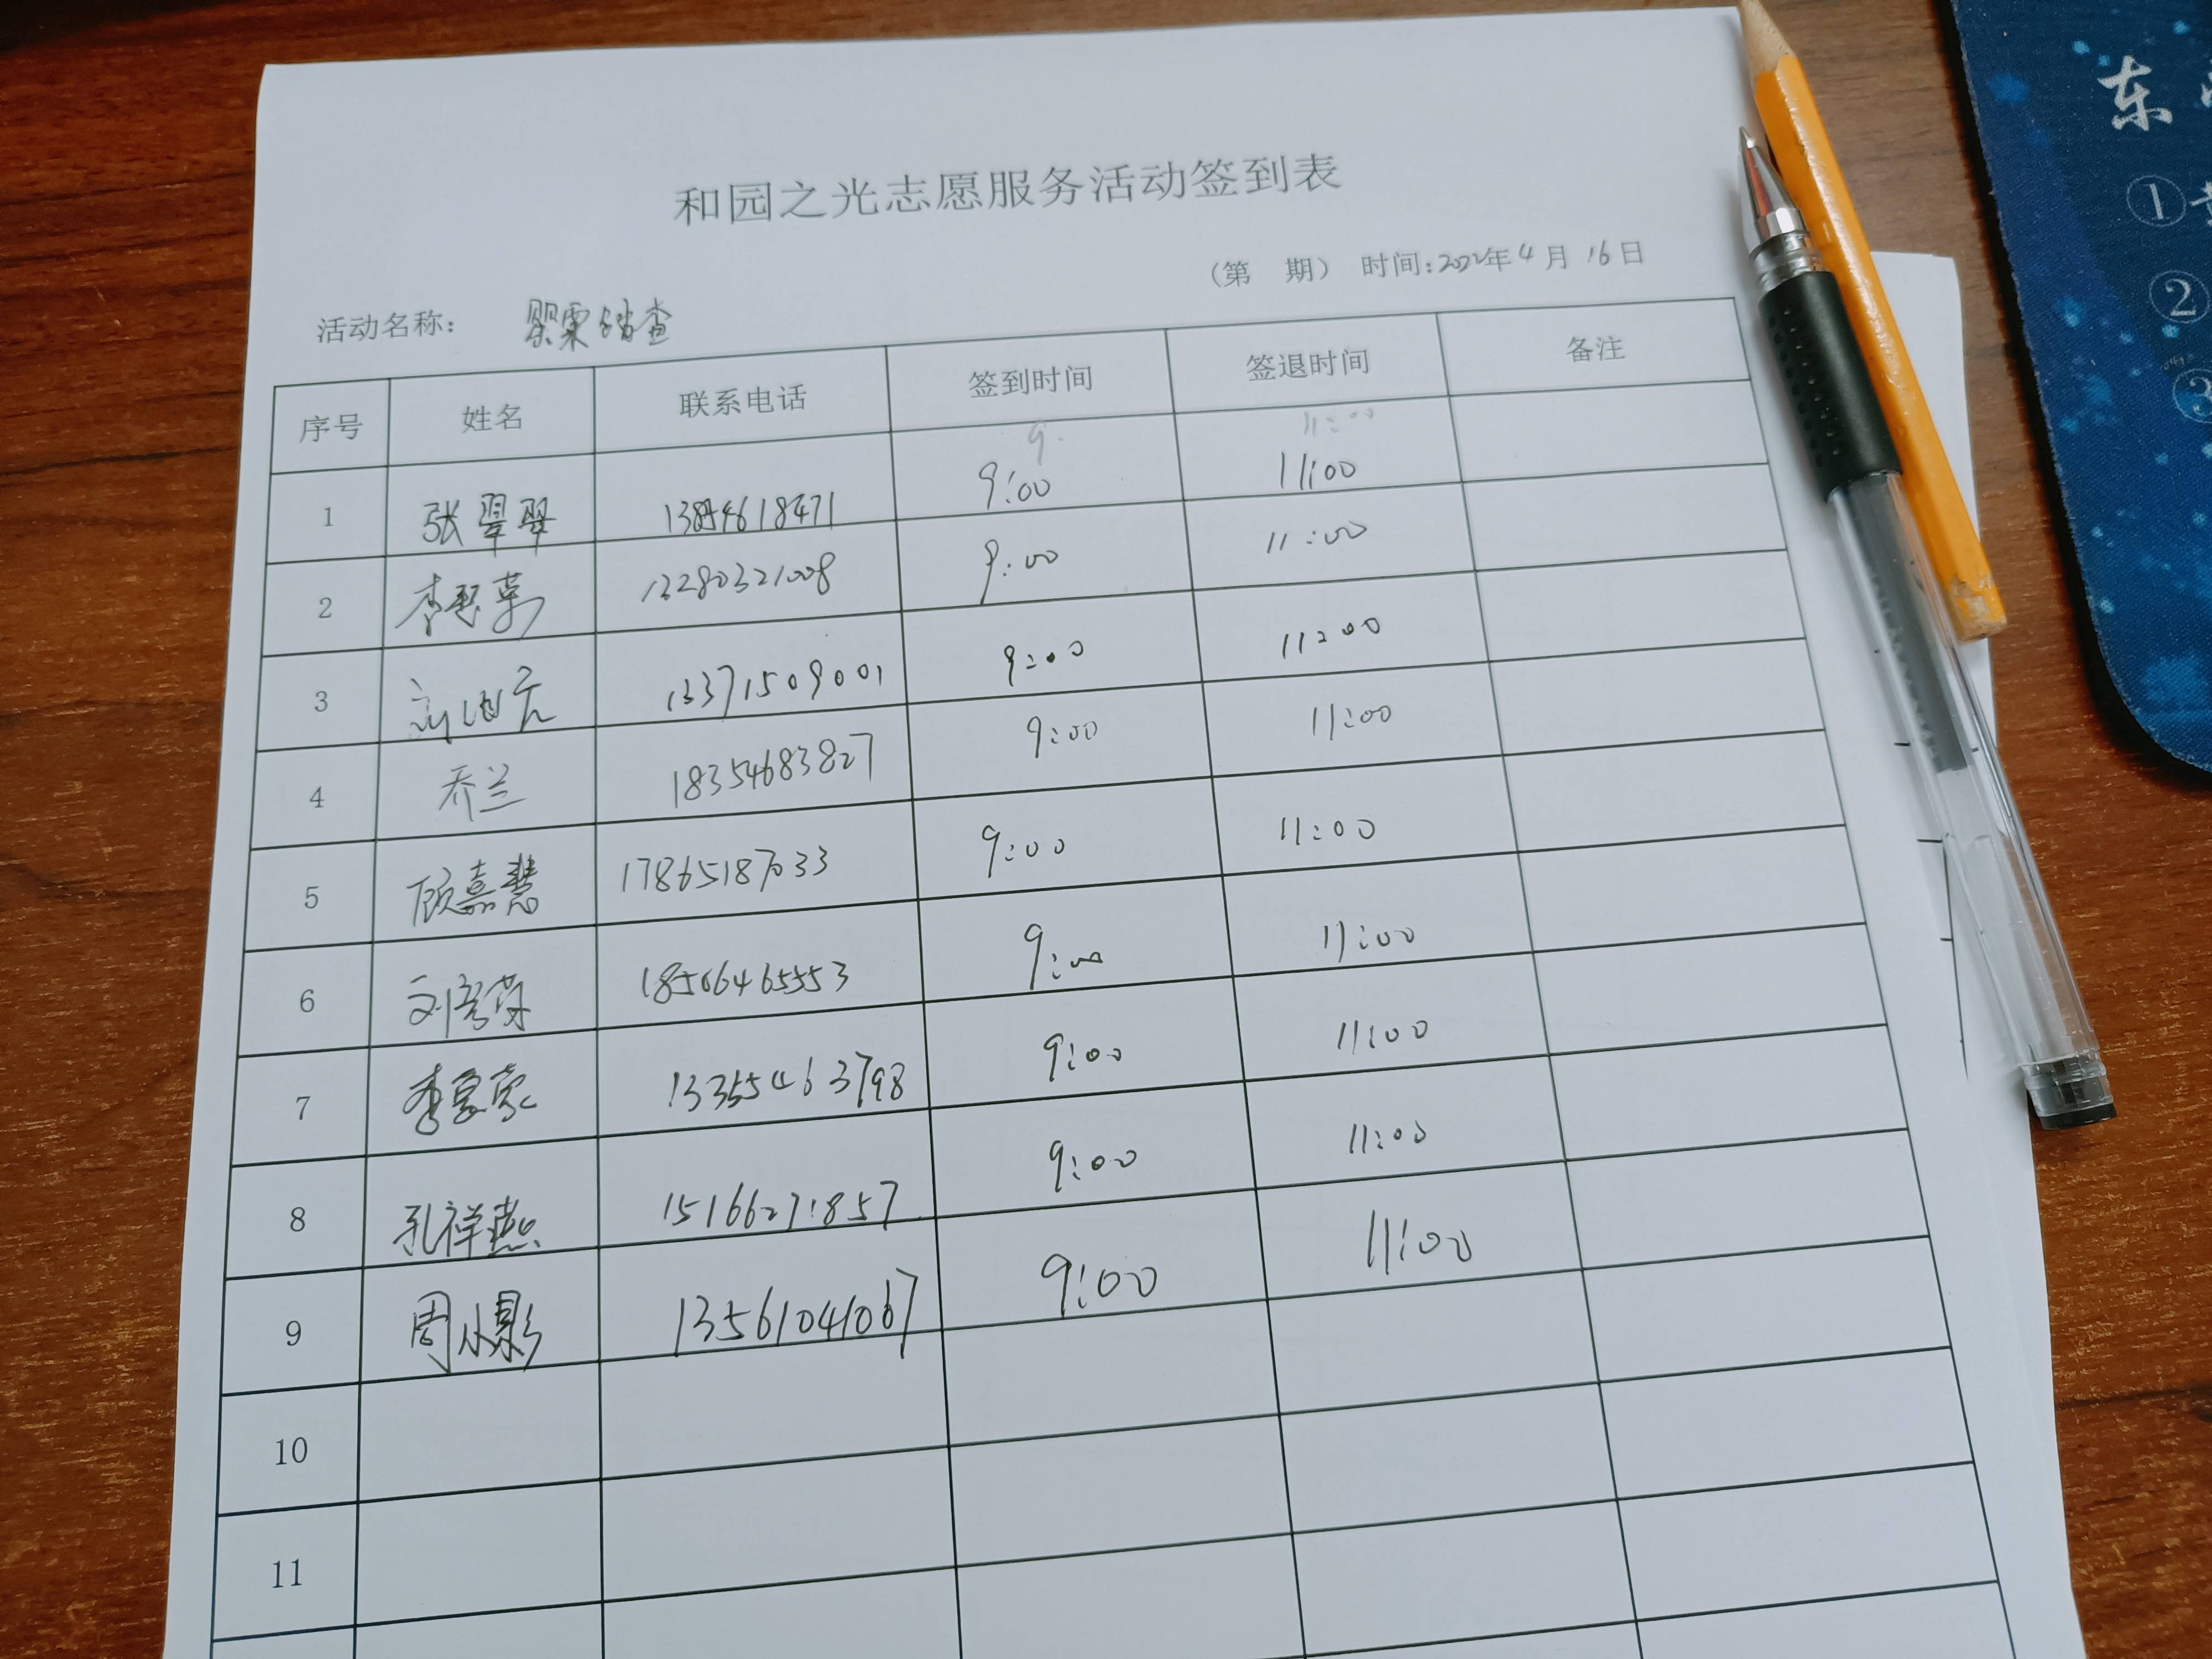 和园之光志愿服务活动签到表
（第 期） 时间:2022年4月16日
活动名称: 罂粟踏查
序号 姓名 联系电话 签到时间 签退时间 备注
9. 11:00
1 张翠翠 13854618471 9:00 11:00
2 李 13280321008 9:00 11:00
3 13371509001 9:00 11:00
4 乔兰 18354683827 9:00 11:00
5 顾嘉慧 17865187033 9:00 11:00
6 刘 18506465553 9:00 11:00
7 李 13355463798 9:00 11:00
8 孔祥燕 15166271857 9:00 11:00
9 周小影 13561041067 9:00 11:00
10
11
东
①
②
③